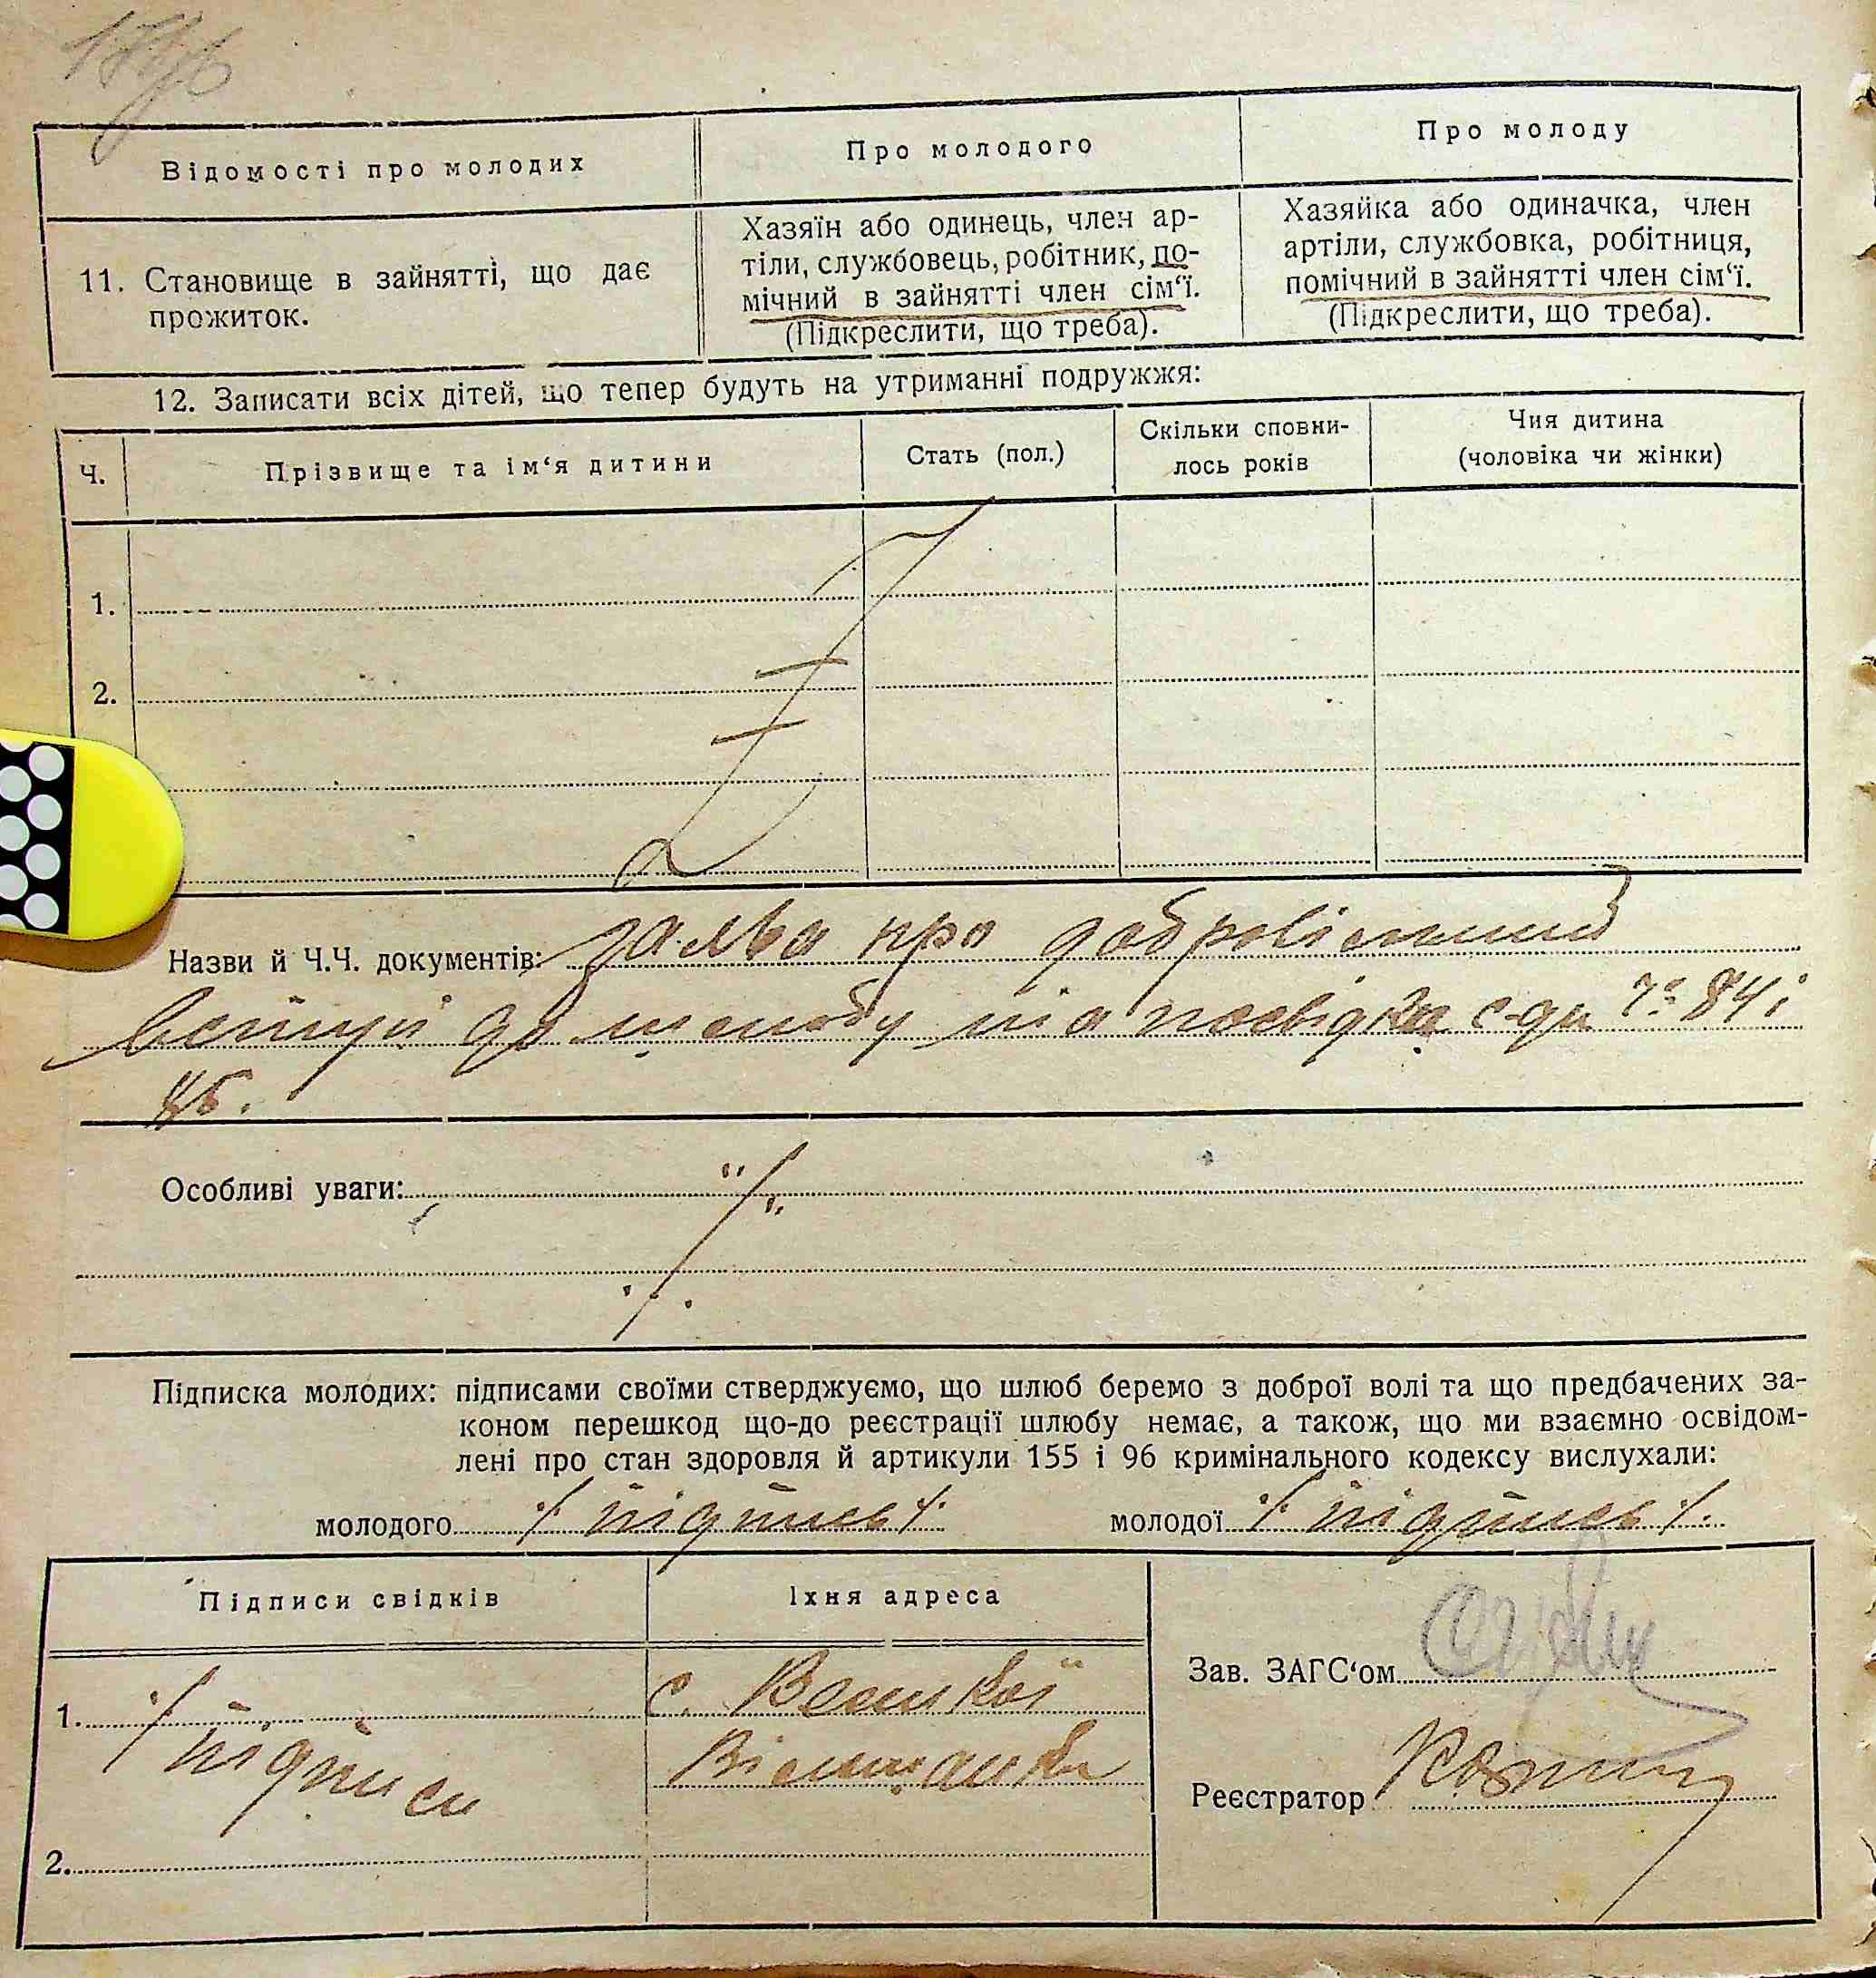 Відомості про молодих
Про молодого
Про молоду
11. Становище в зайнятті, що дає
прожиток.
Хазяїн або одинець, член ар-
тіли, службовець, робітник, по-
мічний в зайнятті член сім‘ї.
(Підкреслити, що треба).
Хазяйка або одиначка, член
артіли, службовка, робітниця,
помічний в зайнятті член сім‘ї.
(Підкреслити, що треба).
12. Записати всіх дітей, що тепер будуть на утриманні подружжя:
Ч.
Прізвище та ім‘я дитини
Стать (пол.)
Скільки сповни-
лось років
Чия дитина
(чоловіка чи жінки)
1.
2.
Назви й Ч.Ч. документів: заява про
до шлюбу та посвідка с-ди 84 і
85.
Особливі уваги:
Підписка молодих: підписами своїми стверджуємо, що шлюб беремо з доброї волі та що предбачених за-
коном перешкод що-до реєстрації шлюбу немає, а також, що ми взаємно освідом-
лені про стан здоровля й артикули 155 і 96 кримінального кодексу вислухали:
молодого ./. підпись ./.
молодої ./. підпись ./.
Підписи свідків
Їхня адреса
1. ./. підписи
с. Великої
Вільшанки
2.
Зав. ЗАГС‘ом
Реєстратор